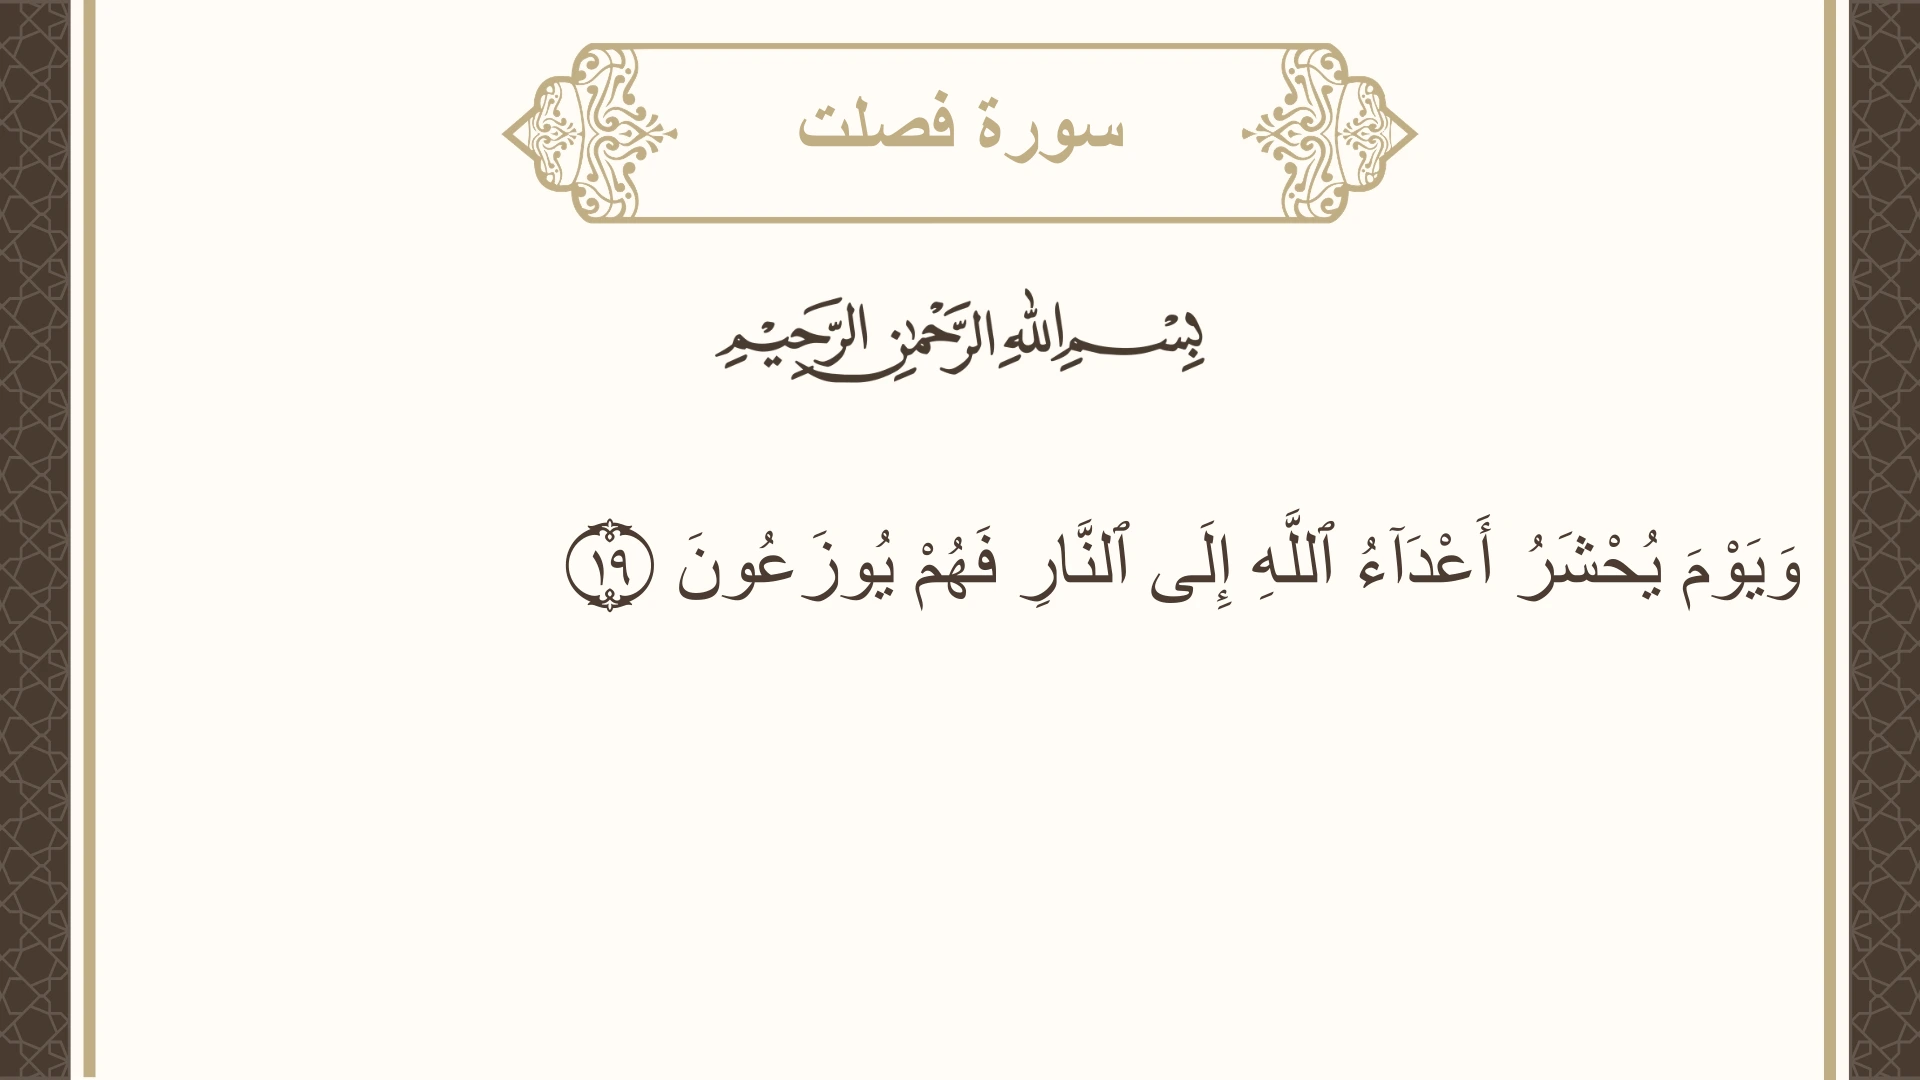 سورة فصلت
بِسْمِ اللهِ الرَّحْمٰنِ الرَّحِيْمِ
وَيَوْمَ يُحْشَرُ أَعْدَآءُ ٱللَّهِ إِلَى ٱلنَّارِ فَهُمْ يُوزَعُونَ ١٩